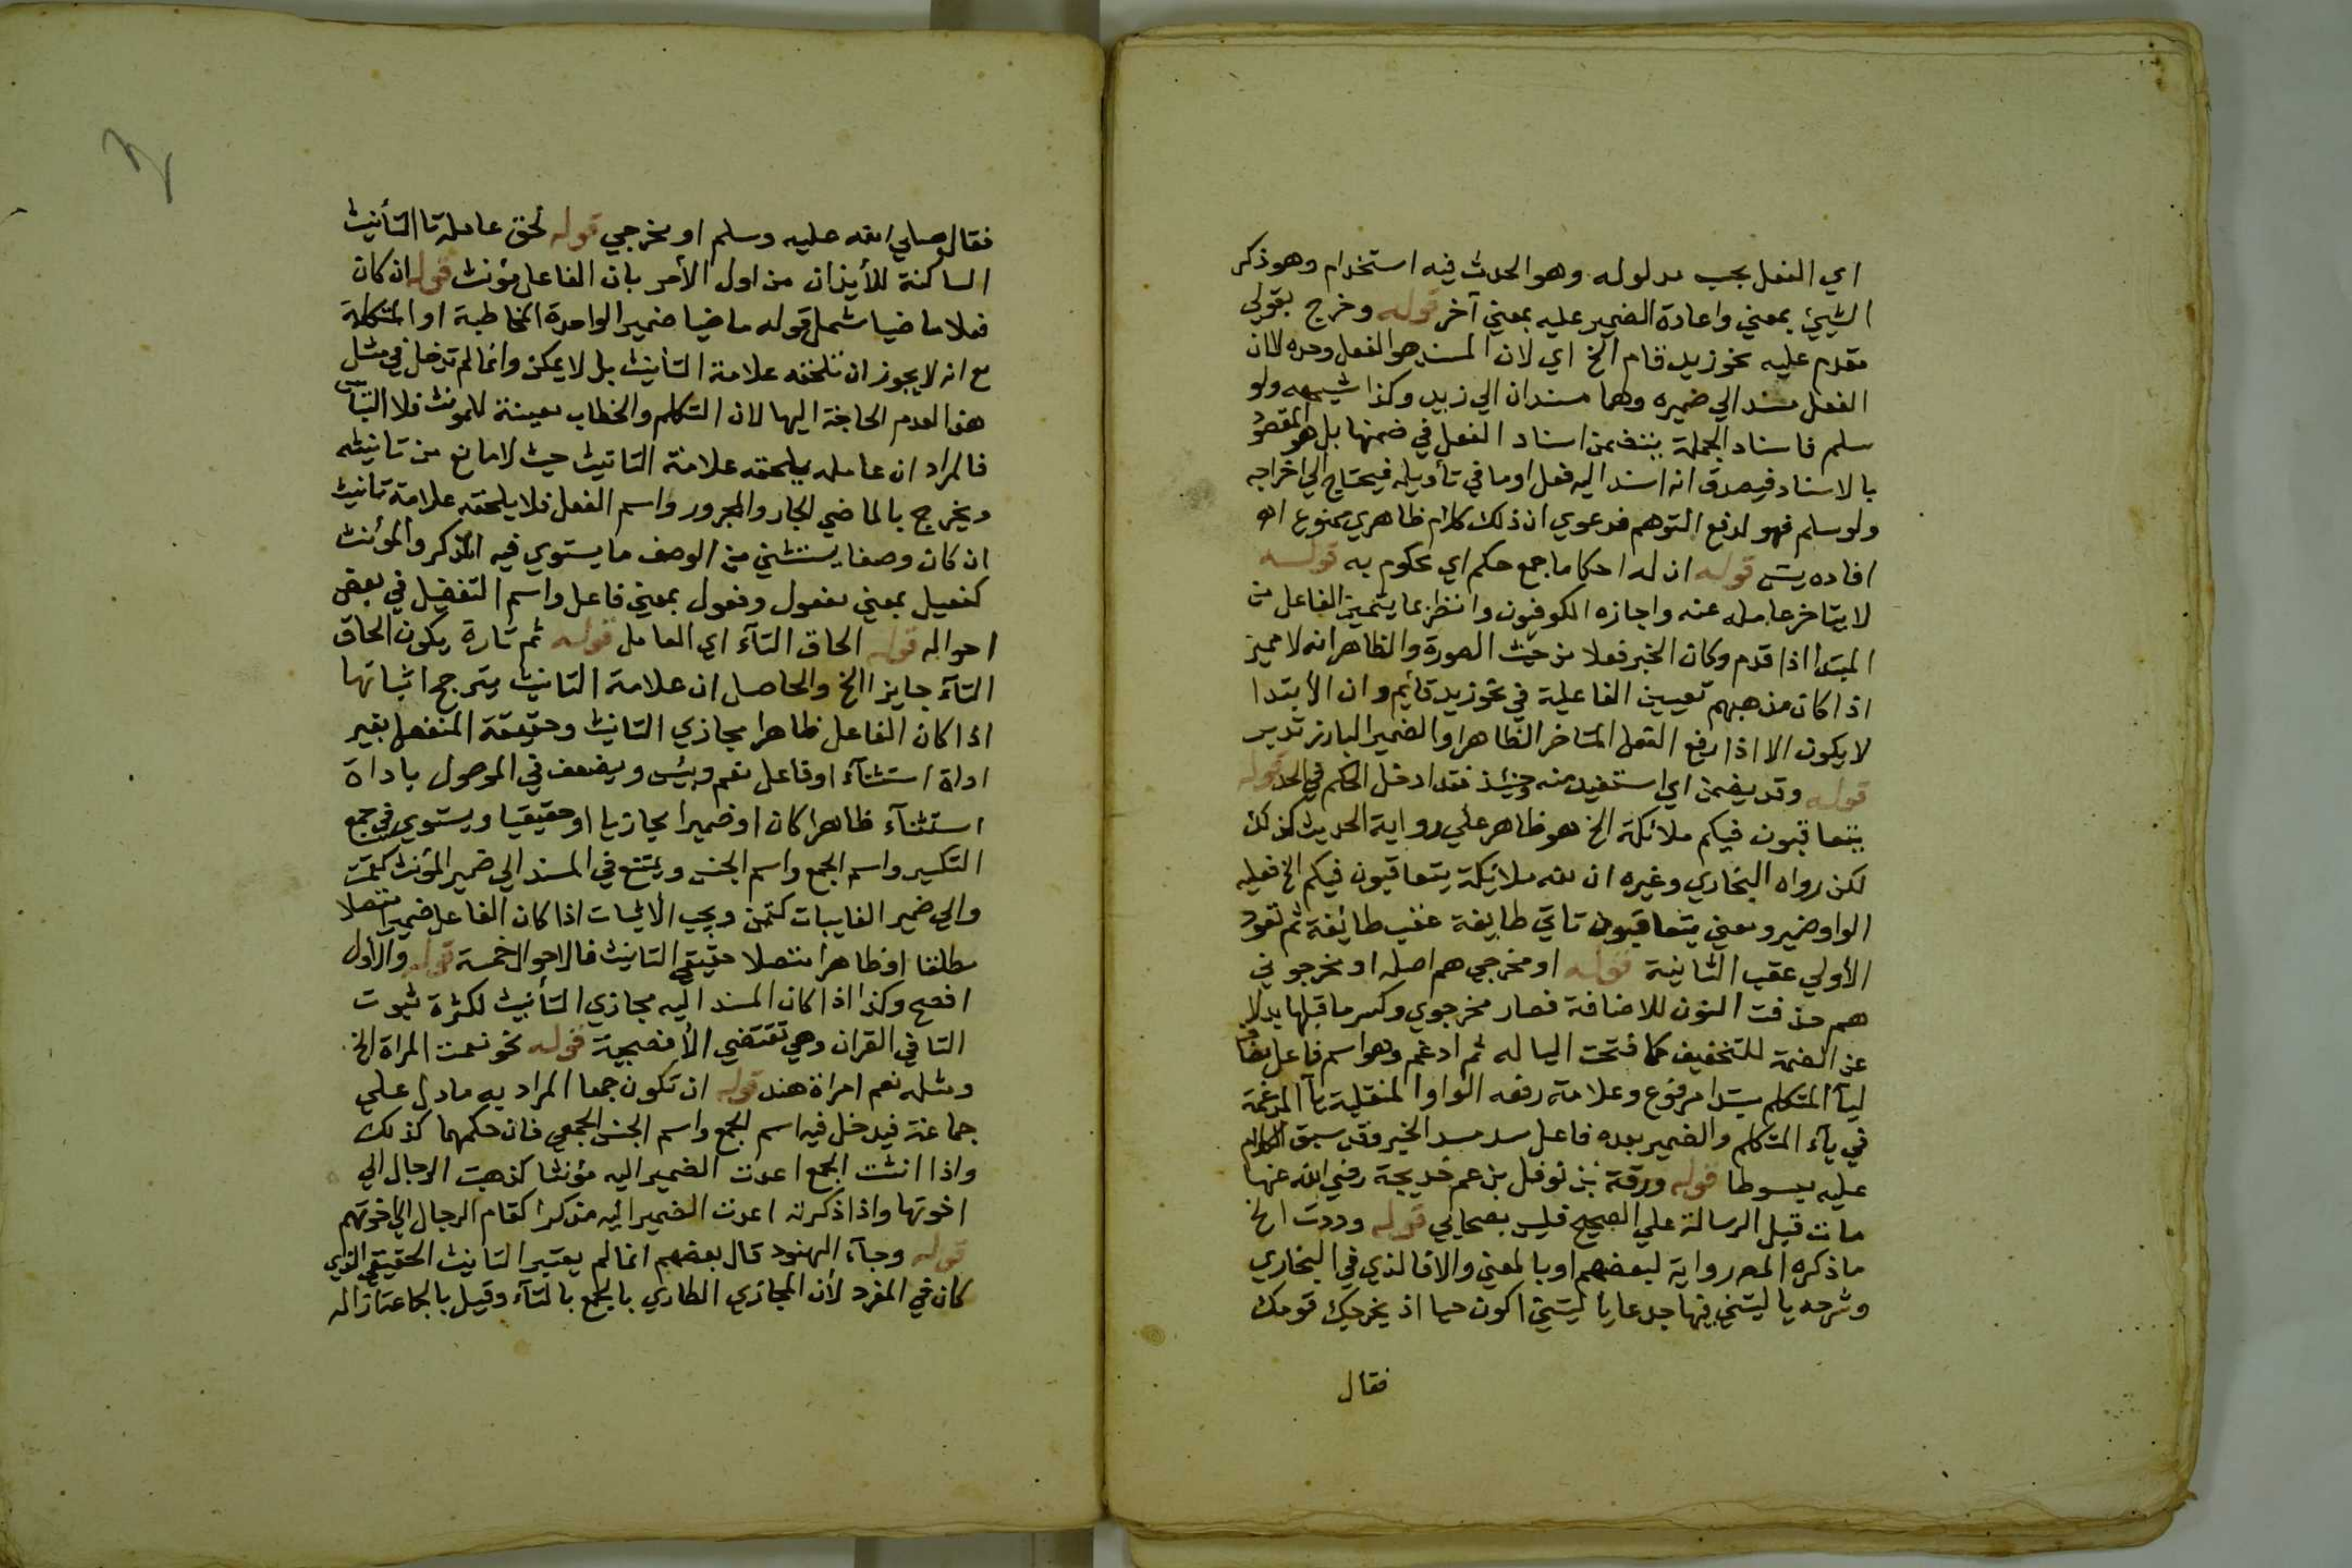 اي الفعل بحسب مدلوله وهو الحدث فيه استخدام وهو ذكر
الشيئ بمعني واعادة الضمير عليه بمعني آخر قوله وخرج بقولي
مقدم عليه نحو زيد قام الخ اي لان المسند هو الفعل وحده لان
الفعل مسند الي ضميره وهما مسندان الي زيد وكذا شبهه ولو
سلم فاسناد الجملة يتضمن اسناد الفعل في ضمنها بل هو المقصود
بالاسناد فيصدق انه اسند اليه فعل او ما في تأويله فيحتاج الي اخراجه
ولو سلم فهو لدفع التوهم فدعوي ان ذلك كلام ظاهري ممنوع اه
افاده يس قوله ان له احكاما جمع حكم اي محكوم به قوله
لا يتاخر عامله عنه واجازه الكوفيون وانظر بما يتميز الفاعل من
المبتدا اذا قدم وكان الخبر فعلا من حيث الصورة والظاهر انه لا مميز
اذا كان مذهبهم تعيين الفاعلية في نحو زيد قايم وان الأبتدا
لا يكون الا اذا رفع الفعل المتاخر الظاهر او الضمير البارز تدبر
قوله وقد يضمن اي استفيد منه وحينئذ فقد ادخل الحكم في الحد قوله
يتعاقبون فيكم ملائكة الخ هو ظاهر علي رواية الحديث كذلك
لكن رواه البخاري وغيره ان لله ملائيكة يتعاقبون فيكم الخ فعليه
الواو ضمير ومعني يتعاقبون تاتي طايفة عقب طائفة ثم تعود
الأولي عقب الثانية قوله او مخرجي هم اصله او مخرجوني
هم حذفت النون للاضافة فصار مخرجوي وكسر ما قبلها بدلا
عن الضمة للتخفيف كما فتحت اليا له ثم ادغم وهو اسم فاعل مضاف
ليآ المتكلم مبتدا مرفوع وعلامة رفعه الواو المنقلبة يآ المدغمة
في يآء المتكلم والضمير بعده فاعل سد مسد الخبر وقد سبق الكلام
عليه مبسوطا قوله ورقة بن نوفل بن عم خديجة رضي الله عنها
مات قبل الرسالة علي الصحيح فليس بصحابي قوله وددت الخ
ما ذكره المص رواية لبعضهم او بالمعني والا فالذي في البخاري
وشرحه يا ليتني فيها جدعا يا ليتني اكون حيا اذ يخرجك قومك
فقال
فقال صلي الله عليه وسلم او مخرجي قوله لحق عامله تا التأنيث
الساكنة للأيذان من اول الأمر بان الفاعل مؤنث قوله ان كان
فعلا ماضيا شمل قوله ماضيا ضمير الواحدة المخاطبة او المتكلمة
مع انه لا يجوز ان تلحقه علامة التأنيث بل لا يمكن وانما لم تدخل في مثل
هذا لعدم الحاجة اليها لان التكلم والخطاب معينة للمونث فلا التباس
فالمراد ان عامله يلحقه علامة التانيث حيث لا مانع من تانيثه
ويخرج بالماضي الجار والمجرور واسم الفعل فلا يلحقه علامة تانيث
ان كان وصفا يستثني من الوصف ما يستوي فيه المذكر والمؤنث
كفعيل بمعني مفعول وفعول بمعني فاعل واسم التفضيل في بعض
احواله قوله الحاق التآء اي العامل قوله ثم تارة يكون الحاق
التآء جايزا الخ والحاصل ان علامة التانيث يترجح اثباتها
اذا كان الفاعل ظاهرا مجازي التانيث وحقيقة المنفصل بغير
اداة استثنآء او فاعل نعم وبئس ويضعف في الموصول باداة
استثنآء ظاهرا كان او ضميرا مجازيا او حقيقيا ويستوي في جمع
التكسير واسم الجمع واسم الجنس ويمتنع في المسند الي ضمير المؤنث كقمت
والي ضمير الغايبات كقمن ويجب الأثبات اذا كان الفاعل ضميرا متصلا
مطلقا او ظاهرا متصلا حقيقي التانيث فالاحوال خمسة قوله والأول
افصح وكذا اذا كان المسند اليه مجازي التأنيث لكثرة ثبوت
التا في القران وهي تقتضي الأفصحية قوله نحو نعمت المراة الخ
ومثله نعم امراة هند قوله ان تكون جمعا المراد به ما دل علي
جماعة فيدخل فيه اسم الجمع واسم الجنس الجمعي فان حكمهما كذلك
واذا انثت الجمع اعدت الضمير اليه مؤنثا كذهبت الرجال الي
اخوتها واذا ذكرته اعدت الضمير اليه مذكرا كقام الرجال الي اخوتهم
قوله وجآء الهنود قال بعضهم انما لم يعتبر التانيث الحقيقي الذي
كان في المفرد لأن المجازي الطاري بالجمع بالتآء وقيل بالجماعة ازاله